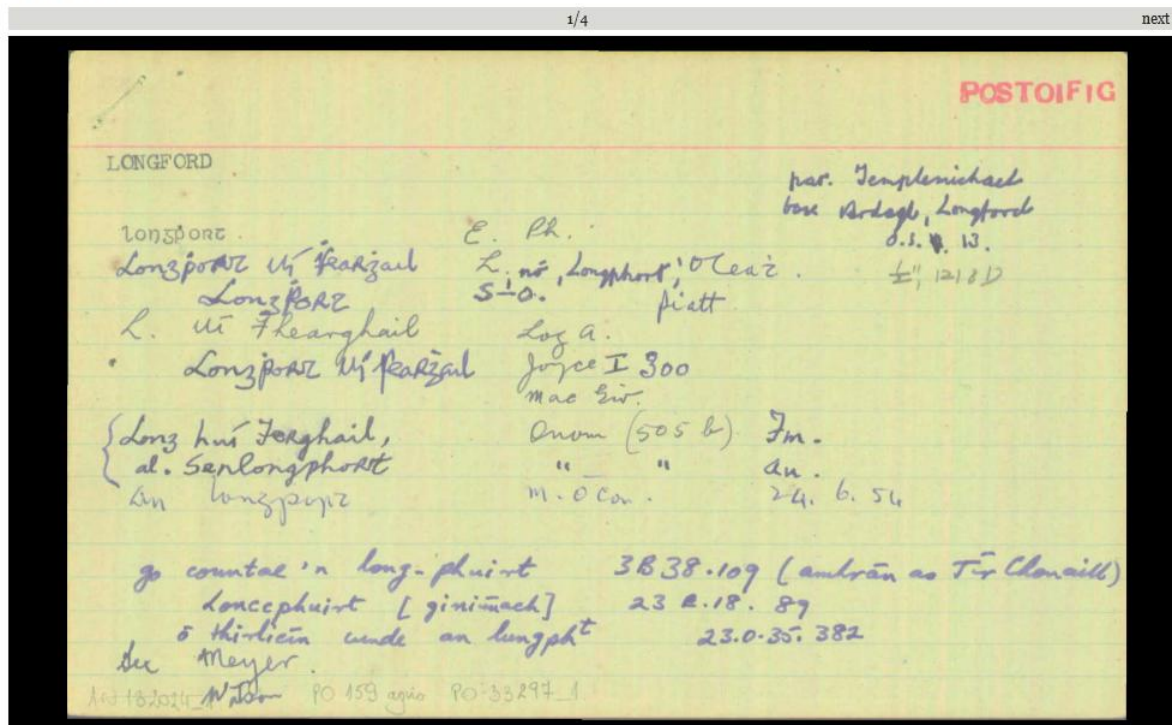 1/4 next
POSTOIFIG
LONGFORD
par. Templemichael
bar. Ardagh, Longford
O.S. 13.
½", 1218D
longport. E. Ph.
Longṗort Uí Ḟearġail L. nó 'Longphort', OLear.
Longṗort S-O. Piatt
L. Uí Fhearghail Log A.
Longṗort Uí Ḟearġail Joyce I 300
Mac Giv.
Long huí Ferghail, Onom (505 b) Fm.
al. Senlongphort " — " An.
An Longport M. Ó Con. 24. 6. 54
go countae 'n long-phuirt 3B38.109 (amhrán as Tír Chonaill)
Longcphuirt [giniúnach] 23 E.18. 89
ó thirlicín cunde an lungpht 23.0.35. 382
Meyer.
PO 159 agus PO-33297_1